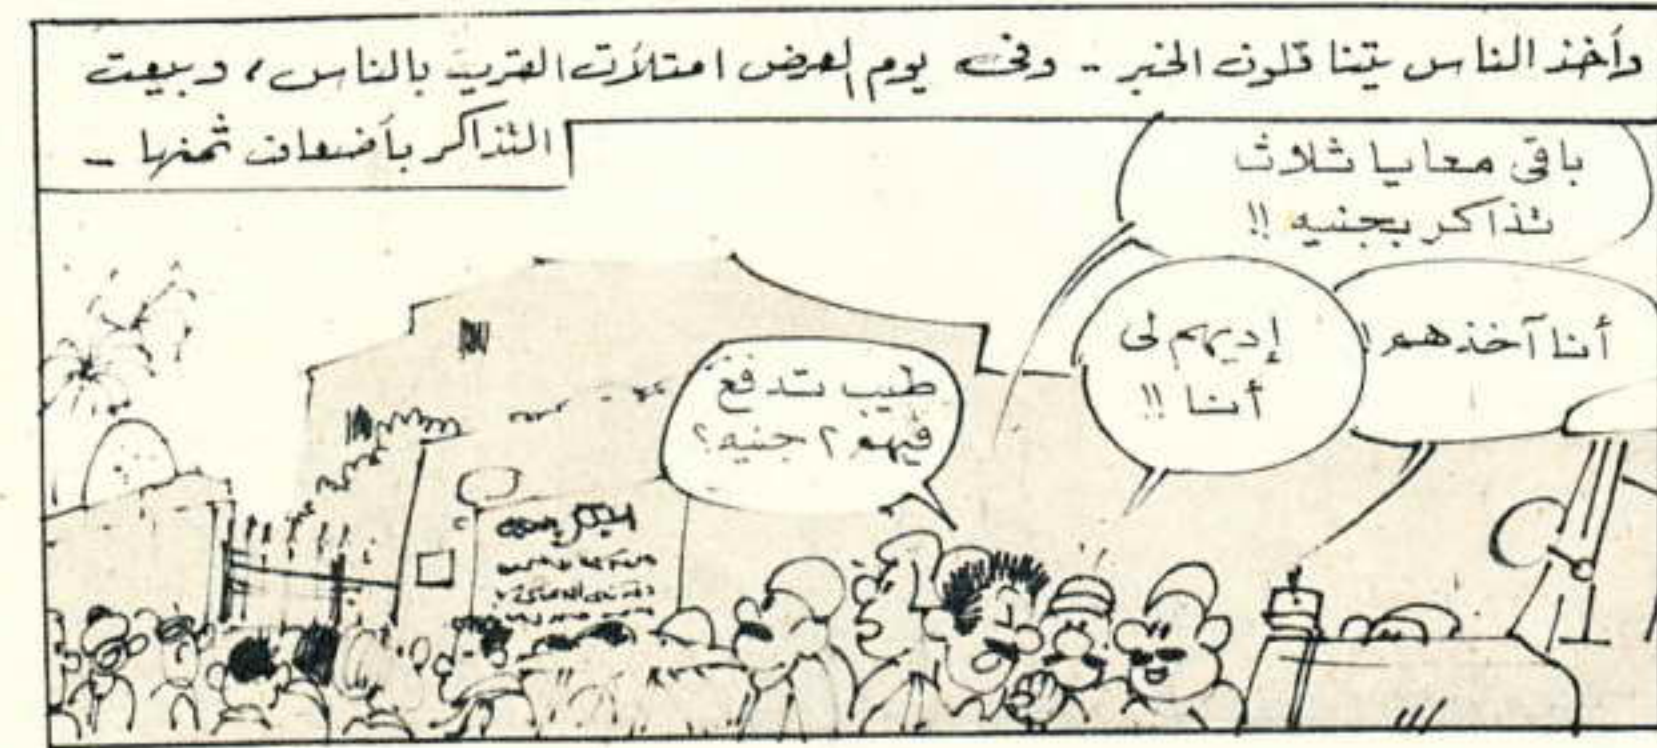 وأخذ الناس يتناقلون الخبر -- وفى يوم العرض امتلأت القرية بالناس، وبيعت
التذاكر بأضعاف ثمنها -
باقى معايا ثلاث
تذاكر بجنيه !!
أنا آخذهم !
إديهم لى
أنا !!
طيب تدفع
فيهم ٢ جنيه ؟